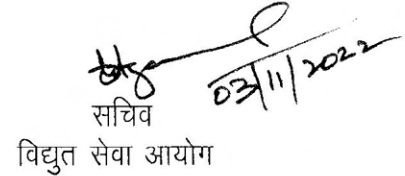 03/11/2022
सचिव
विद्युत सेवा आयोग